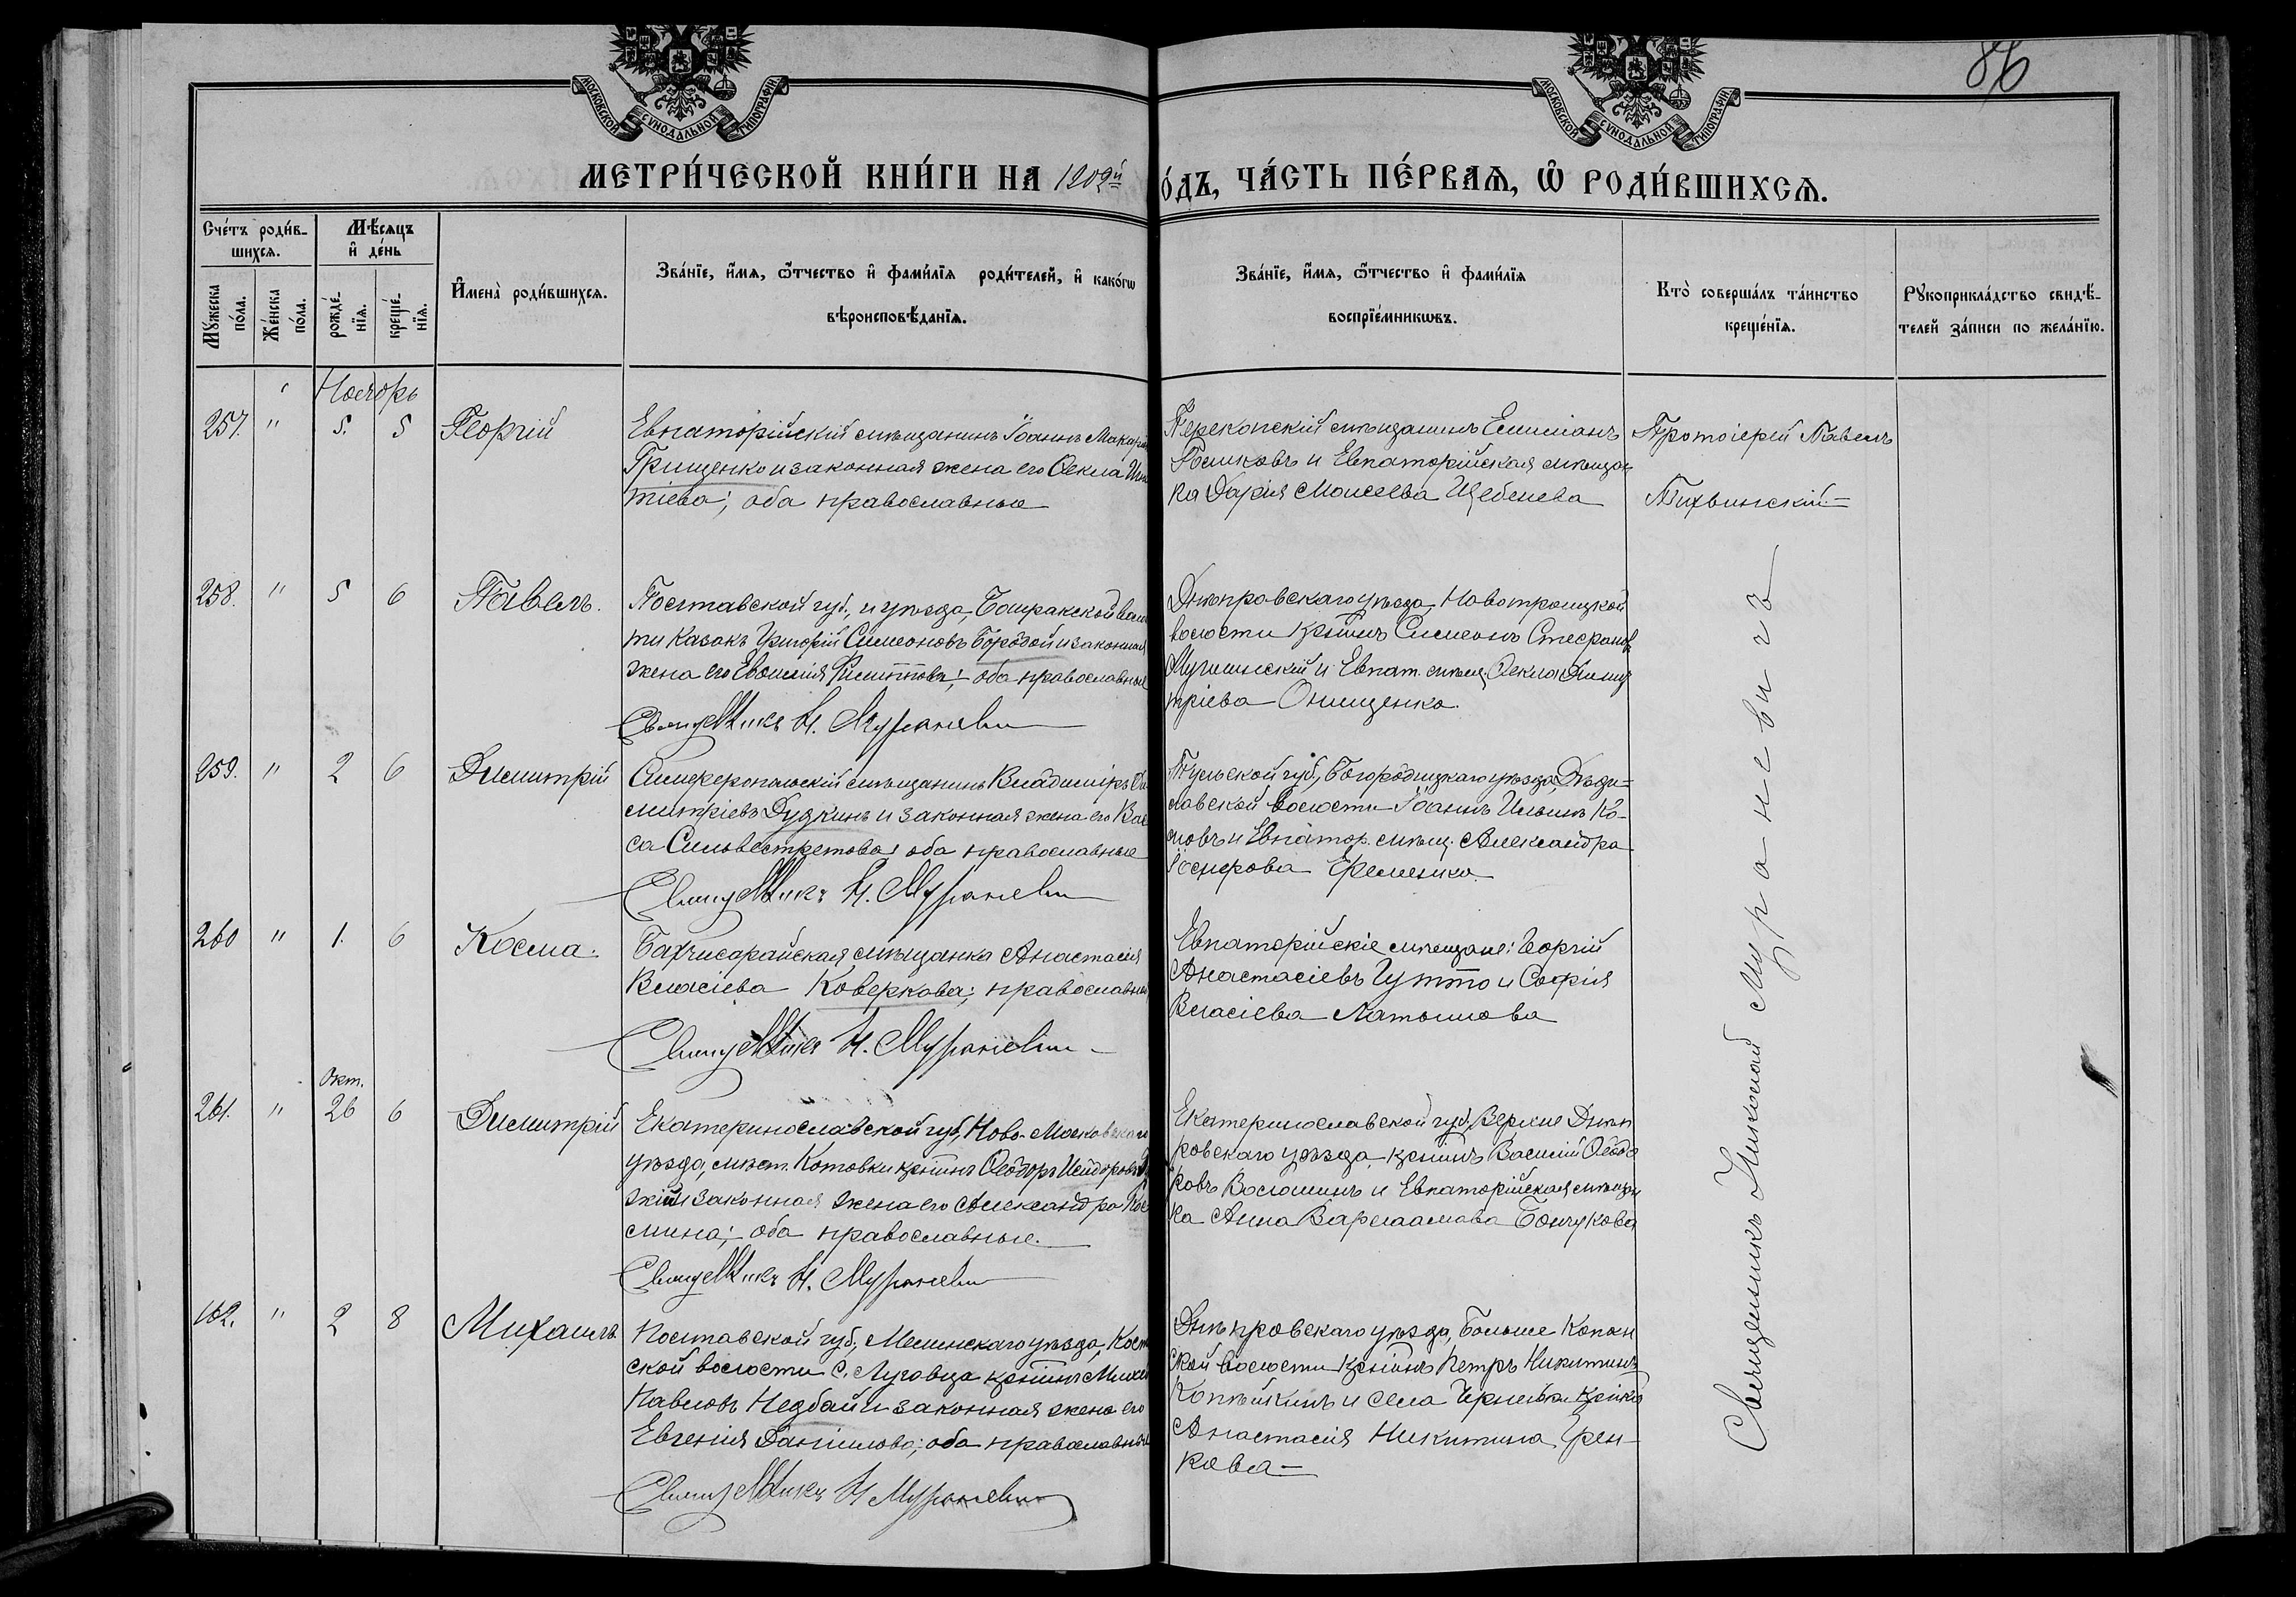 86
МОСКОВСКОЙ СѴНОДАЛЬНОЙ ТИПОГРАФІИ
МОСКОВСКОЙ СѴНОДАЛЬНОЙ ТИПОГРАФІИ
МЕТРИ́ЧЕСКОЙ КНИ́ГИ НА
ОДЪ, ЧА́СТЬ ПЕ́РВАЯ, Ѡ РОДИ́ВШИХСЯ.
Сче́тъ роди́в-
шихся.
Мѣ́сяцъ
и де́нь
Мꙋ́жеска по́ла.
Же́нска по́ла.
рожде́нїя.
креще́нїя.
И҆мена̀ роди́вшихся.
Зва́нїе, и҆́мя, ѻ҆́тчество и҆ фами́лїя роди́телей, и҆ како́гѡ
вѣроисповѣ́данїя.
Зва́нїе, и҆́мя, ѻ҆́тчество и҆ фами́лїя
воспрїе́мникѡвъ.
Кто̀ соверша́лъ та́инство
креще́нїя.
Рꙋкоприкла́дство свидѣ́-
телей за́писи по жела́нїю.
Ноябрь
257. " 5. 5 Георгій
Евпаторійскій мѣщанинъ Іоаннъ
Грищенко и законная жена его Ѳекла
тіева; оба православные
Перекопскій мѣщанинъ Емиліанъ
и Евпаторійская мѣщан
ка Дарія Моисеева Щебенева
Протоіерей Павелъ
Тихвинскій
258. " 5 6 Павелъ.
Полтавской губ., и уѣзда, волос
ти казакъ Григорій Симеоновъ Бородай и законная
жена его Филиппова; оба православные
Священникъ Н. Мураневи
Днѣпровскаго уѣзда, Новотроицкой
волости кр̃нинъ Симеонъ Стефановъ
и Евпат. мѣщ. Ѳекла Дими
тріева Онищенко.
259. " 2 6 Димитрій
Симферопольскій мѣщанинъ Владиміръ Ди
митріевъ Дудкинъ и законная жена его Вас
са Сильвестрова; оба православные
Священникъ Н. Мураневи
Тульской губ., Богородицкаго уѣзда,
лавской волости Іоаннъ Ильинъ Ко-
ловъ и Евпатор. мѣщ. Александра
Іосифова Еременко
260 " 1. 6 Косма.
Бахчисарайская мѣщанка Анастасія
Власіева Коверкова; православная
Священникъ Н. Мураневи
Евпаторійскіе мѣщане: Георгій
Анастасіевъ и Софія
Власіева Латышова
Окт.
261. " 26 6 Димитрій
Екатеринославской губ., Ново-Московскаго
уѣзда, мѣст. Котовки кр̃нинъ Ѳеодоръ Исидоровъ
жій и законная жена его Александра Кос
мина; оба православные.
Священникъ Н. Мураневи
Екатеринославской губ., Верхне Днѣп
ровскаго уѣзда, кр̃нинъ Василій Ѳеодо
ровъ Волошинъ и Евпаторійская мѣщан
ка Анна Варлаамова Бончукова
162. " 2 8 Михаилъ
Полтавской губ., уѣзда,
ской волости с. Луговца кр̃нинъ
Павловъ Недбай и законная жена его
Евгенія Даніилова; оба православные
Священникъ Н Мураневи
Днѣпровскаго уѣзда, Больше Копан
ской волости кр̃нинъ Петръ Никитинъ
Копѣйкинъ и села кр̃нка
Анастасія Никитина
кова
Священникъ Николай Мураневичъ